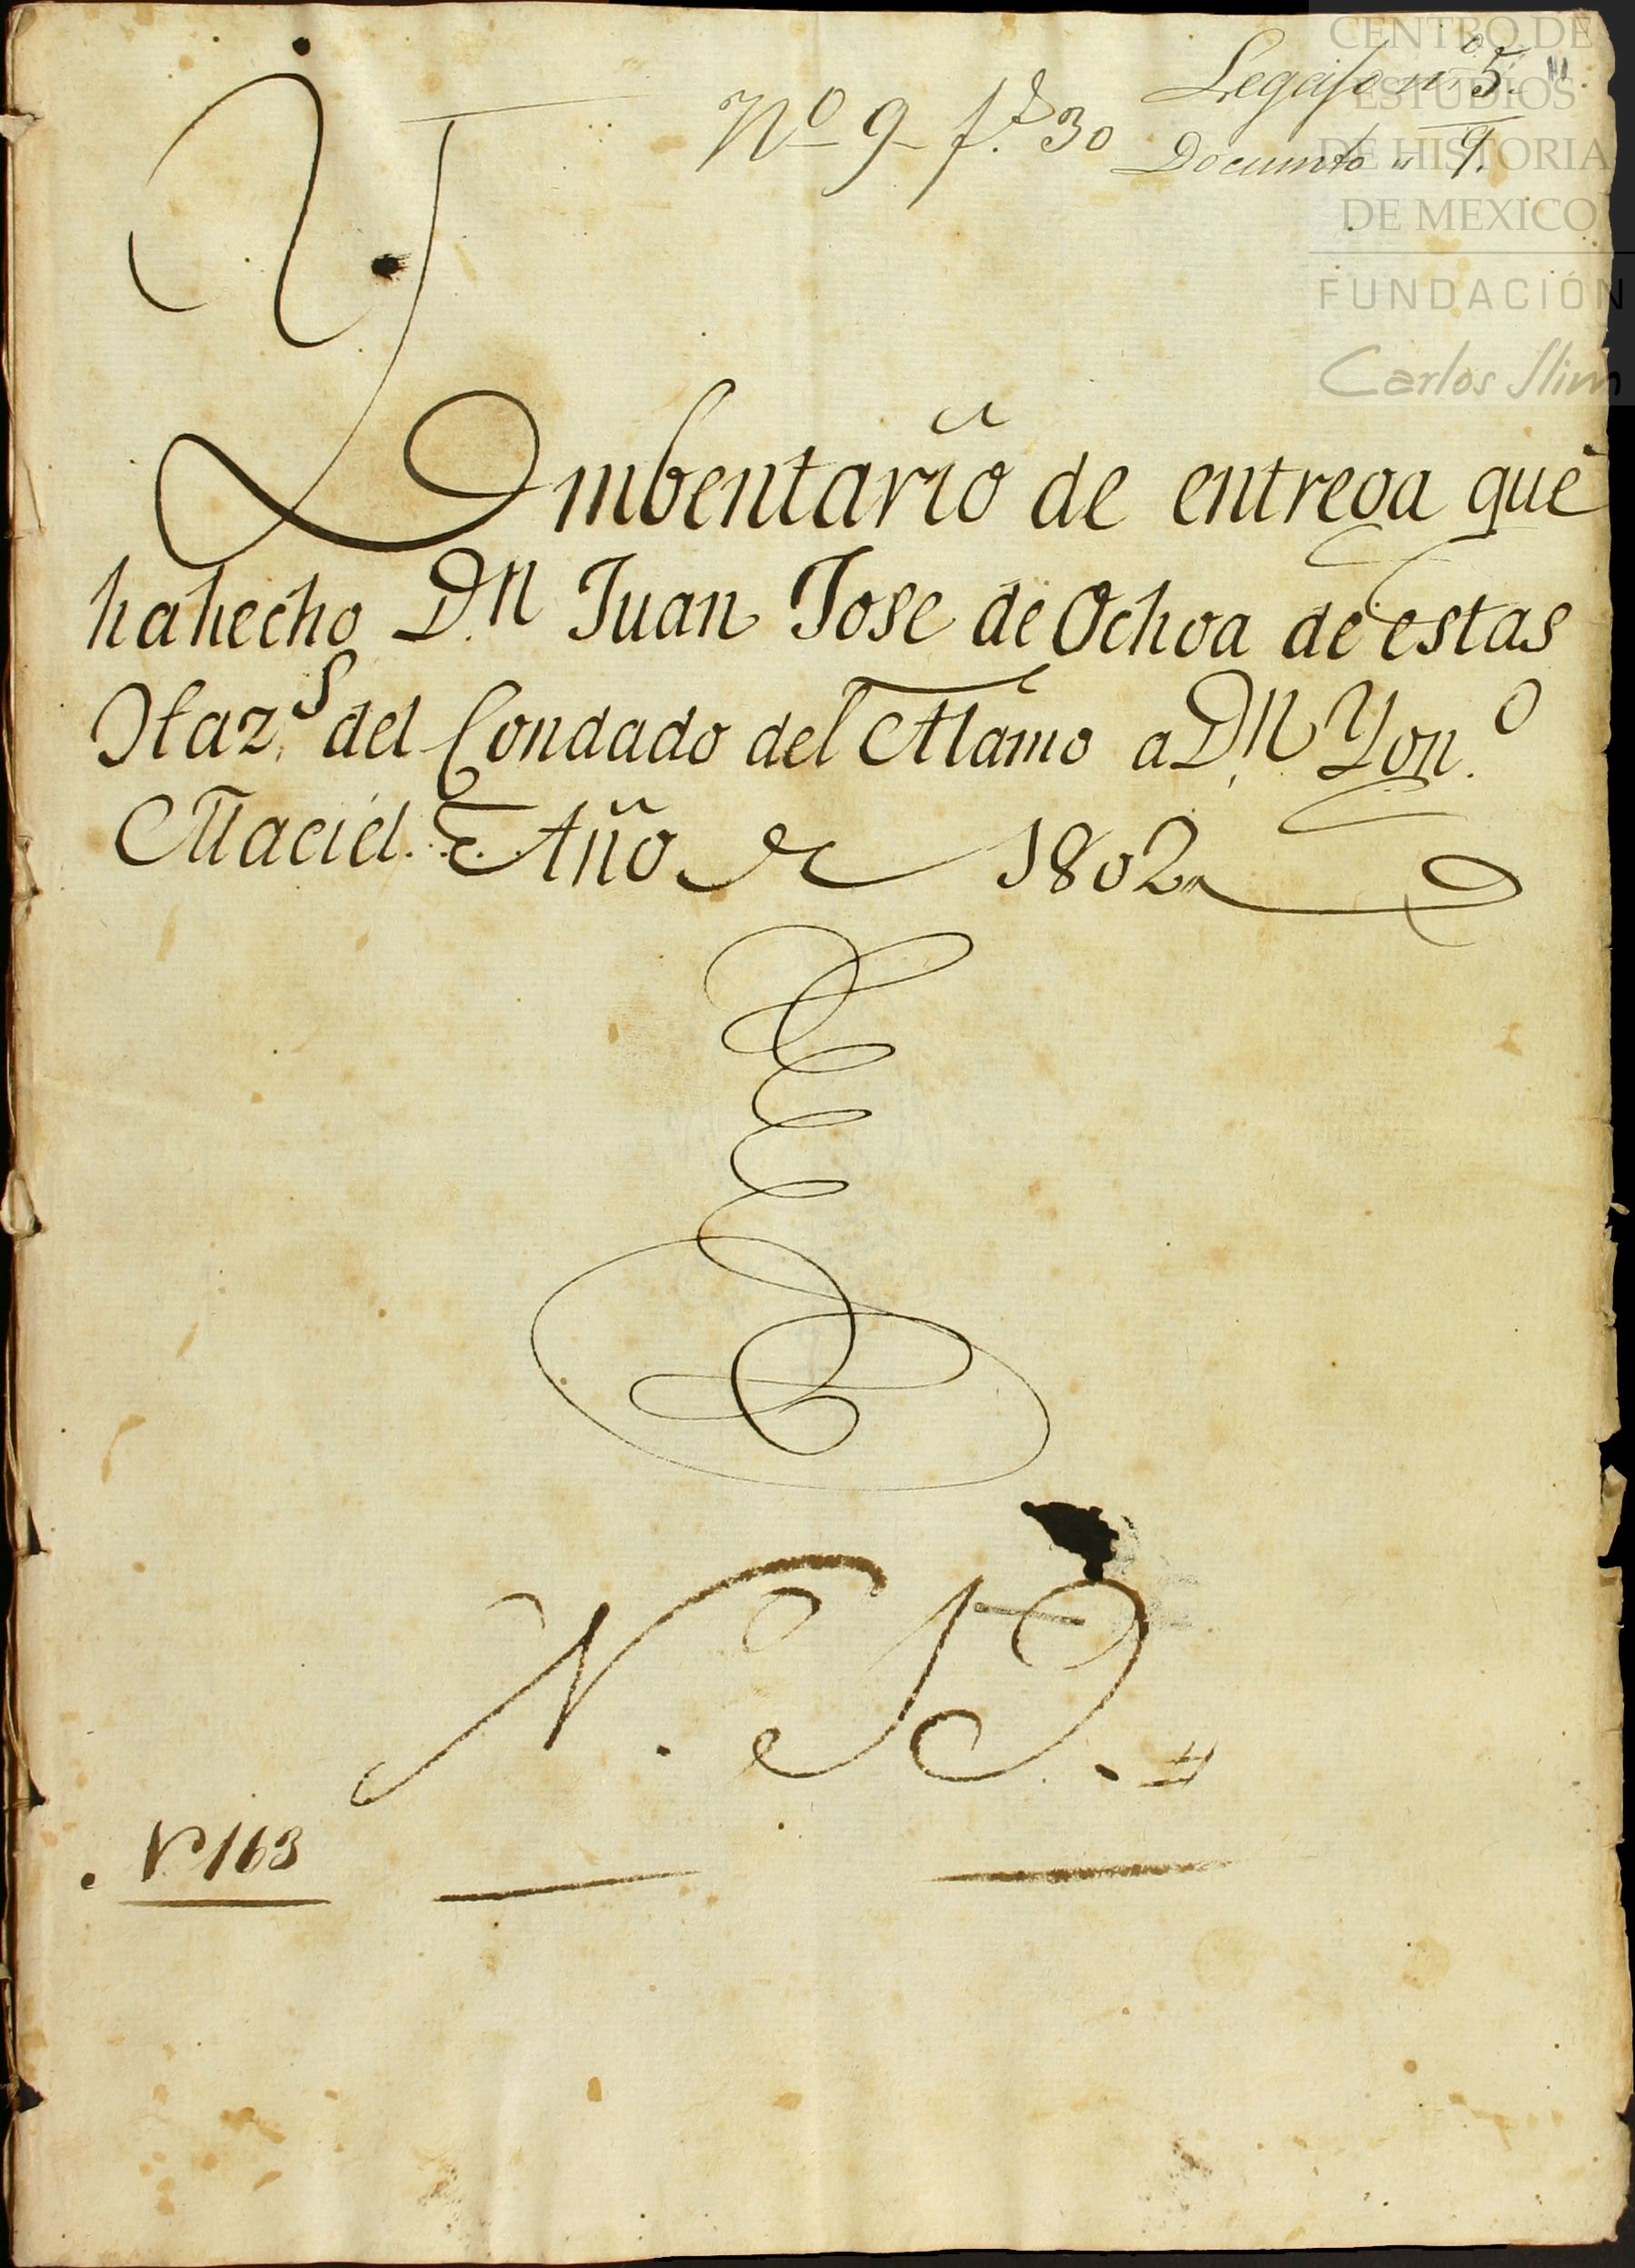 Legajo nº 5.
Nº 9 f.s 30
Documto " 9.
CENTRO DE
ESTUDIOS
DE HISTORIA
DE MEXICO
FUNDACIÓN
Carlos Slim
Ymbentario de entrega que
ha hecho D.n Juan Jose de Ochoa de estas
Haz.s del Condado del Alamo a D.n Ygn.o
Maciel. Año de 1802
N. 19.
Nº 163